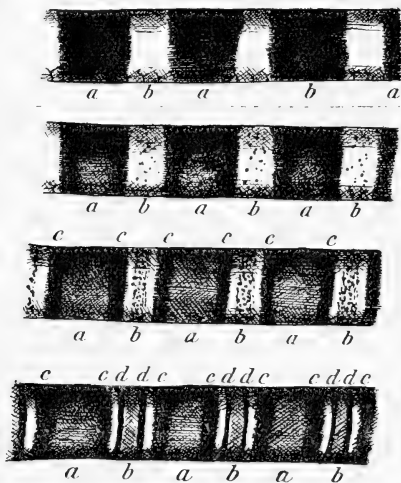 a b a b a
a b a b a b
c c c c c c
a b a b a b
c c d d c c d d c c d d c
a b a b a b